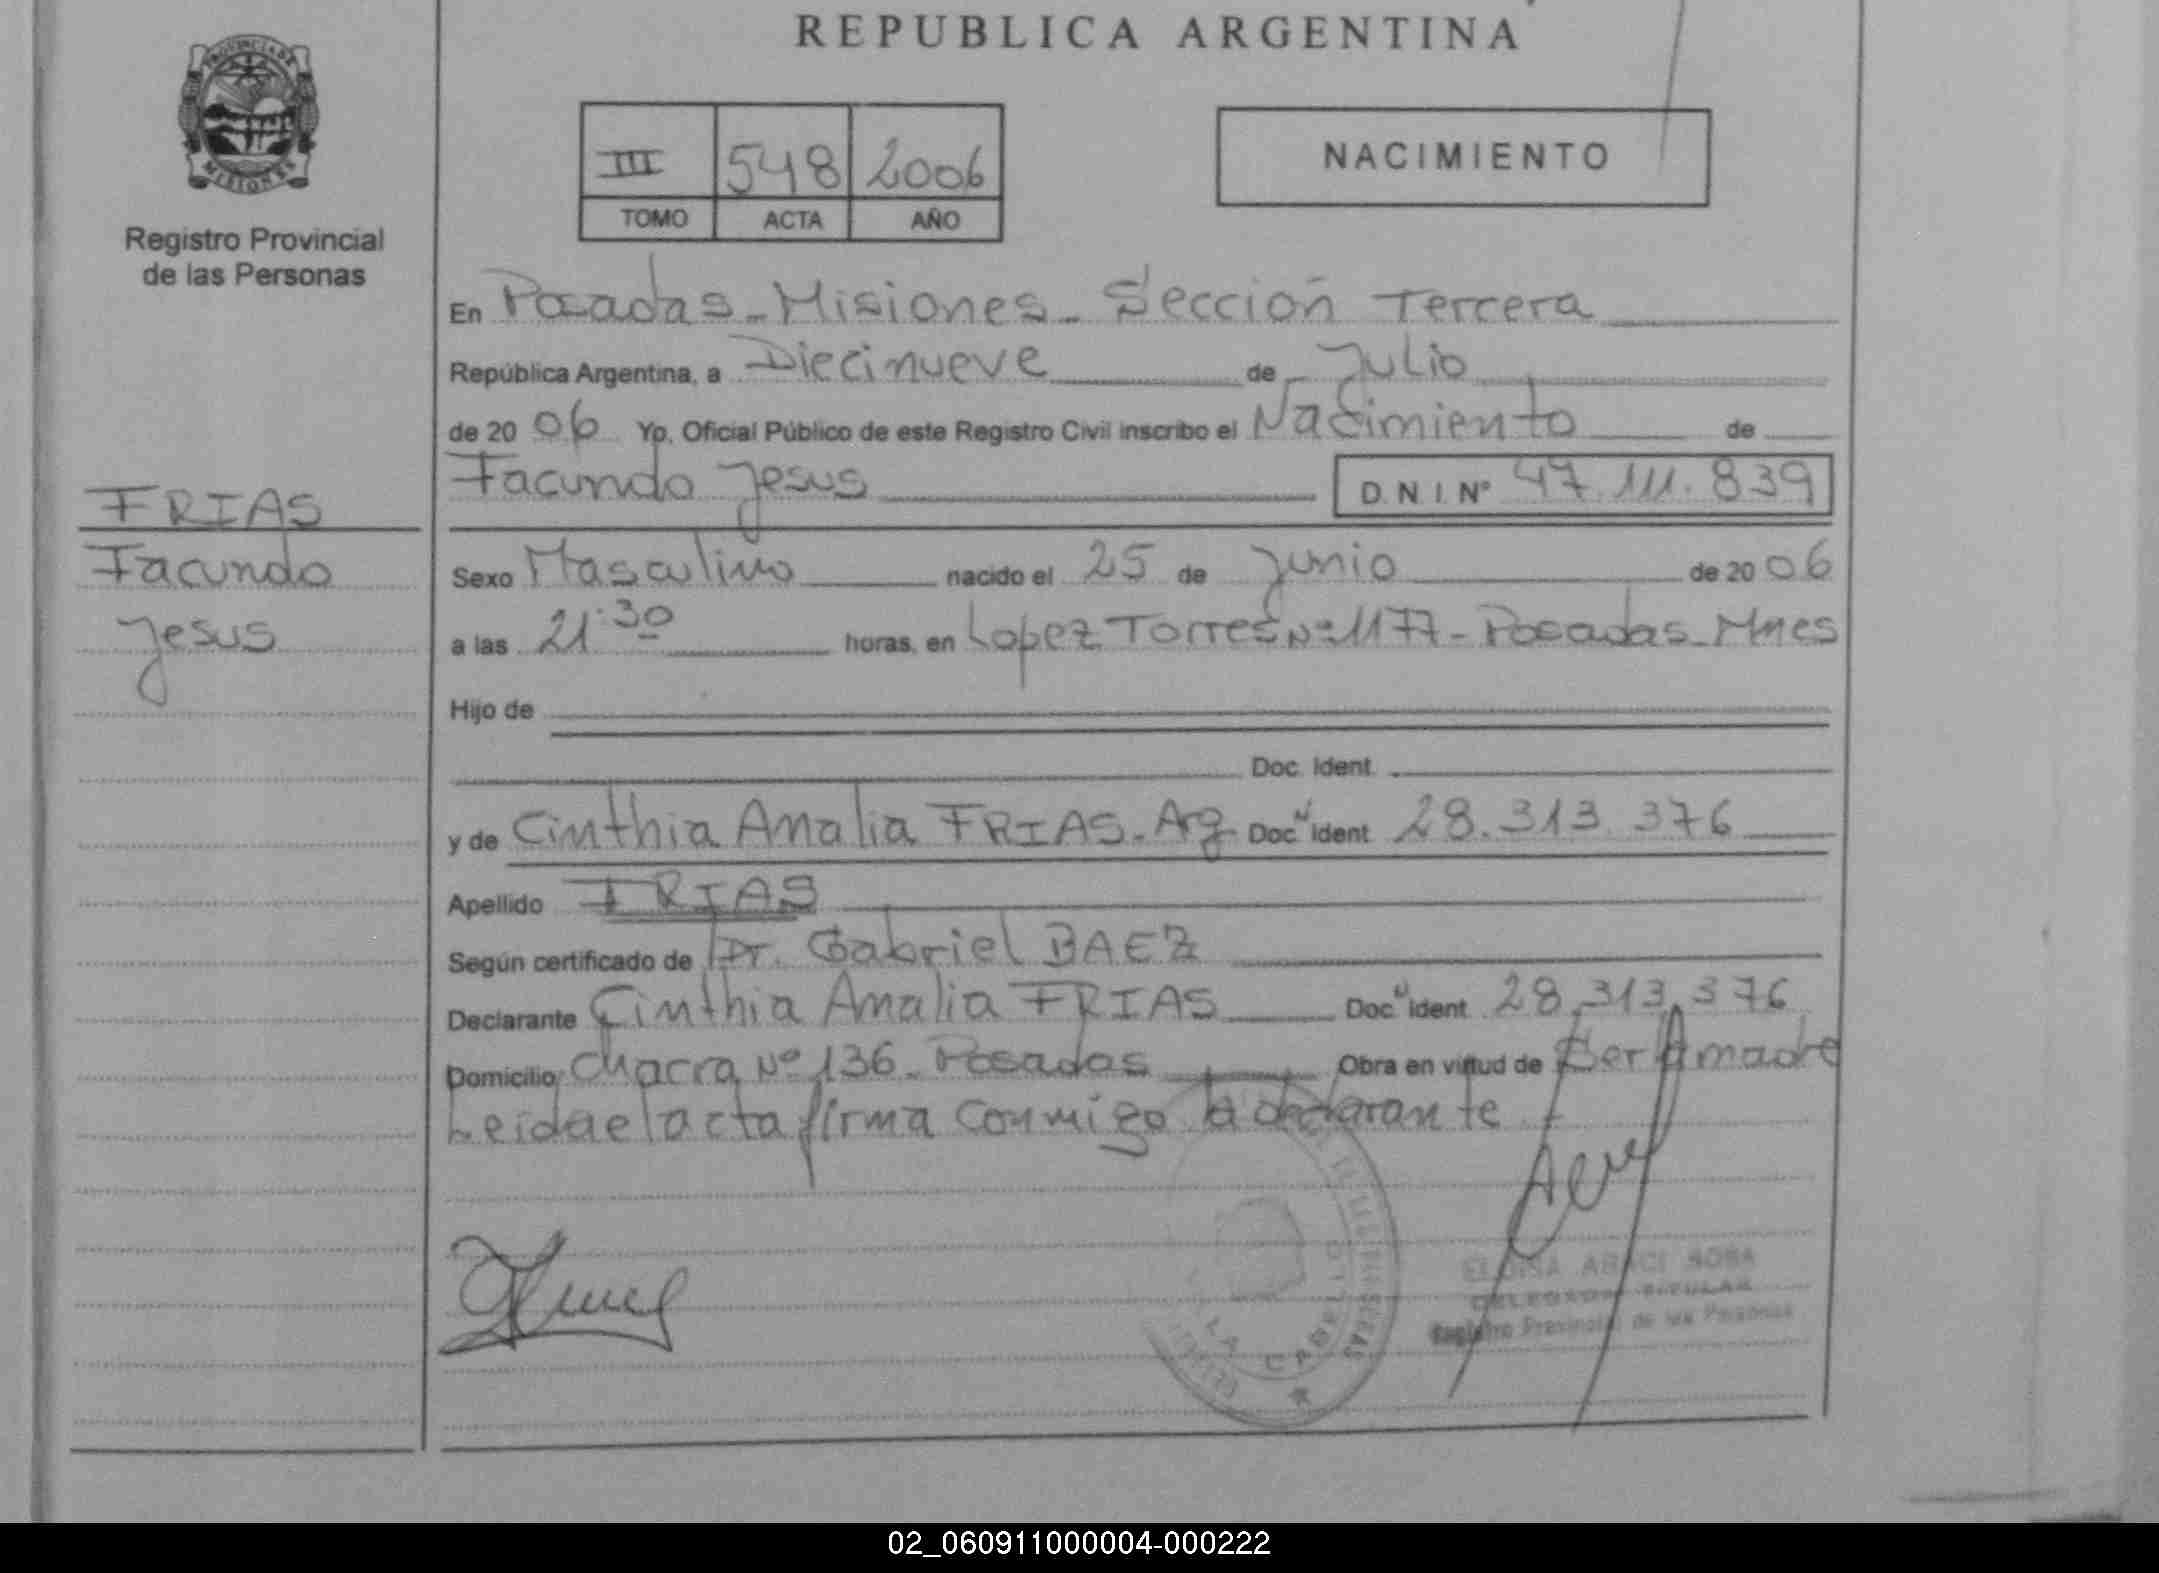 REPUBLICA ARGENTINA
PROVINCIA DE
MISIONES
Registro Provincial
de las Personas
III 548 2006
TOMO ACTA AÑO
NACIMIENTO
En Posadas - Misiones - Sección Tercera
República Argentina, a Diecinueve de Julio
de 20 06 Yo, Oficial Público de este Registro Civil inscribo el Nacimiento de
Facundo Jesus D.N.I. Nº 47.111.839
FRIAS
Facundo
Jesus
Sexo Masculino nacido el 25 de Junio de 20 06
a las 21:30 horas, en Lopez Torres Nº 1177 - Posadas - Mnes
Hijo de
Doc. Ident.
y de Cinthia Analia FRIAS - Arg Doc. Ident. 28.313.376
Apellido FRIAS
Según certificado de Dr. Gabriel BAEZ
Declarante Cinthia Analia FRIAS Doc. Ident. 28.313.376
Domicilio Chacra Nº 136 - Posadas Obra en virtud de Ser la madre
Leida el acta firma conmigo la declarante
LA CABRAL
ARACI SOSA
DELEGADO TITULAR
Registro Provincial de las Personas
02_060911000004-000222